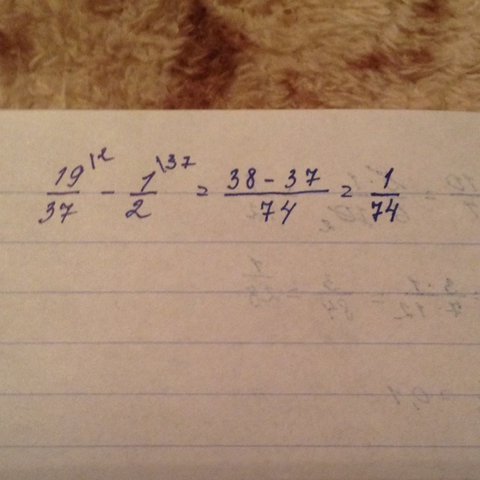 19/37 \2 - 1/2 \37 = 38 - 37/74 = 1/74